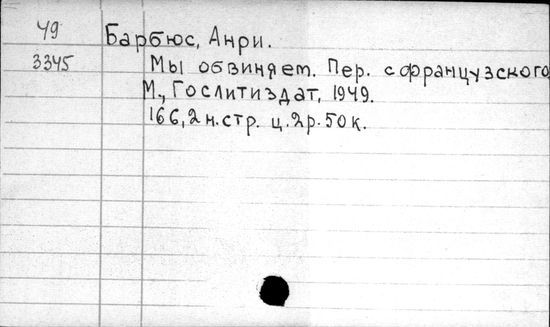 49
3345
Барбюс, Анри.
Мы обвиняем. Пер. с французского
М., Гослитиздат, 1949.
166, 2 н.стр. ц. 2р. 50к.